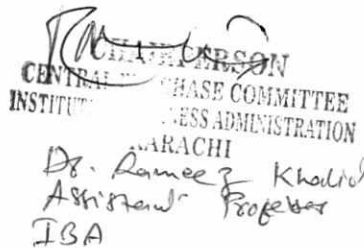 CHAIRPERSON
CENTRAL PURCHASE COMMITTEE
INSTITUTE BUSINESS ADMINISTRATION
KARACHI
Dr. Rameez Khalid
Assistant Professor
IBA